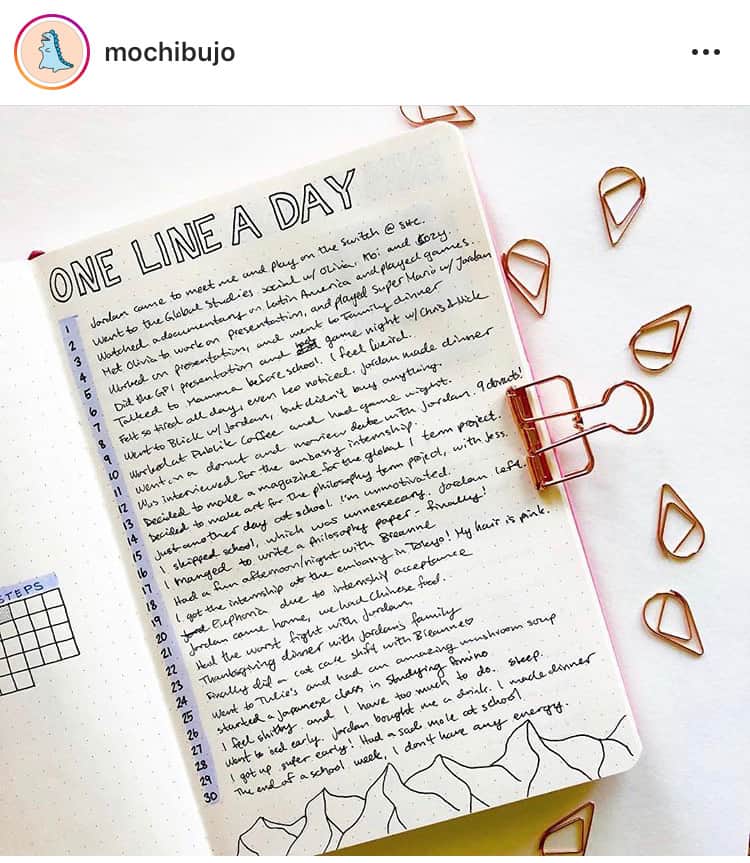 mochibujo
ONE LINE A DAY
1 Jordan came to meet me and play on the switch @ SHC.
2 Went to the Global Studies social w/ Olivia, and Cozy.
3 Watched a documentary on Latin America and played games.
4 Met Olivia to work on presentation, and played Super Mario w/ Jordan
5 Worked on presentation, and went to Family dinner
6 Did the GPI presentation and game night w/ Chris & Nick
7 Talked to Mamma before school. I feel weird.
8 Felt so tired all day, even Leo noticed. Jordan made dinner
9 Went to Blick w/ Jordan, but didn't buy anything.
10 Worked at Publik Coffee and had game night.
11 Went on a donut and movie date with Jordan. 9 donuts!
12 Was interviewed for the embassy internship.
13 Decided to make a magazine for the global 1 term project.
14 Decided to make art for the philosophy term project, with Jess.
15 Just another day at school. I'm unmotivated.
16 I skipped school, which was unnessecary. Jordan left.
17 I managed to write a Philosophy paper - finally!
18 Had a fun afternoon/night with Breanne
19 I got the internship at the embassy in Tokyo! My hair is pink.
20 Euphoria due to internship acceptance
21 Jordan came home, we had Chinese food.
22 Had the worst fight with Jordan,
23 Thanksgiving dinner with Jordan's family
24 Finally did a cat cafe shift with Breanne♡
25 Went to Julie's and had an amazing mushroom soup
26 started a Japanese class in Studying Amino
27 I feel shitty and I have too much to do. sleep.
28 Went to bed early. Jordan bought me a drink. I made dinner
29 I got up super early! Had a sad mole at school
30 The end of a school week, I don't have any energy.
STEPS